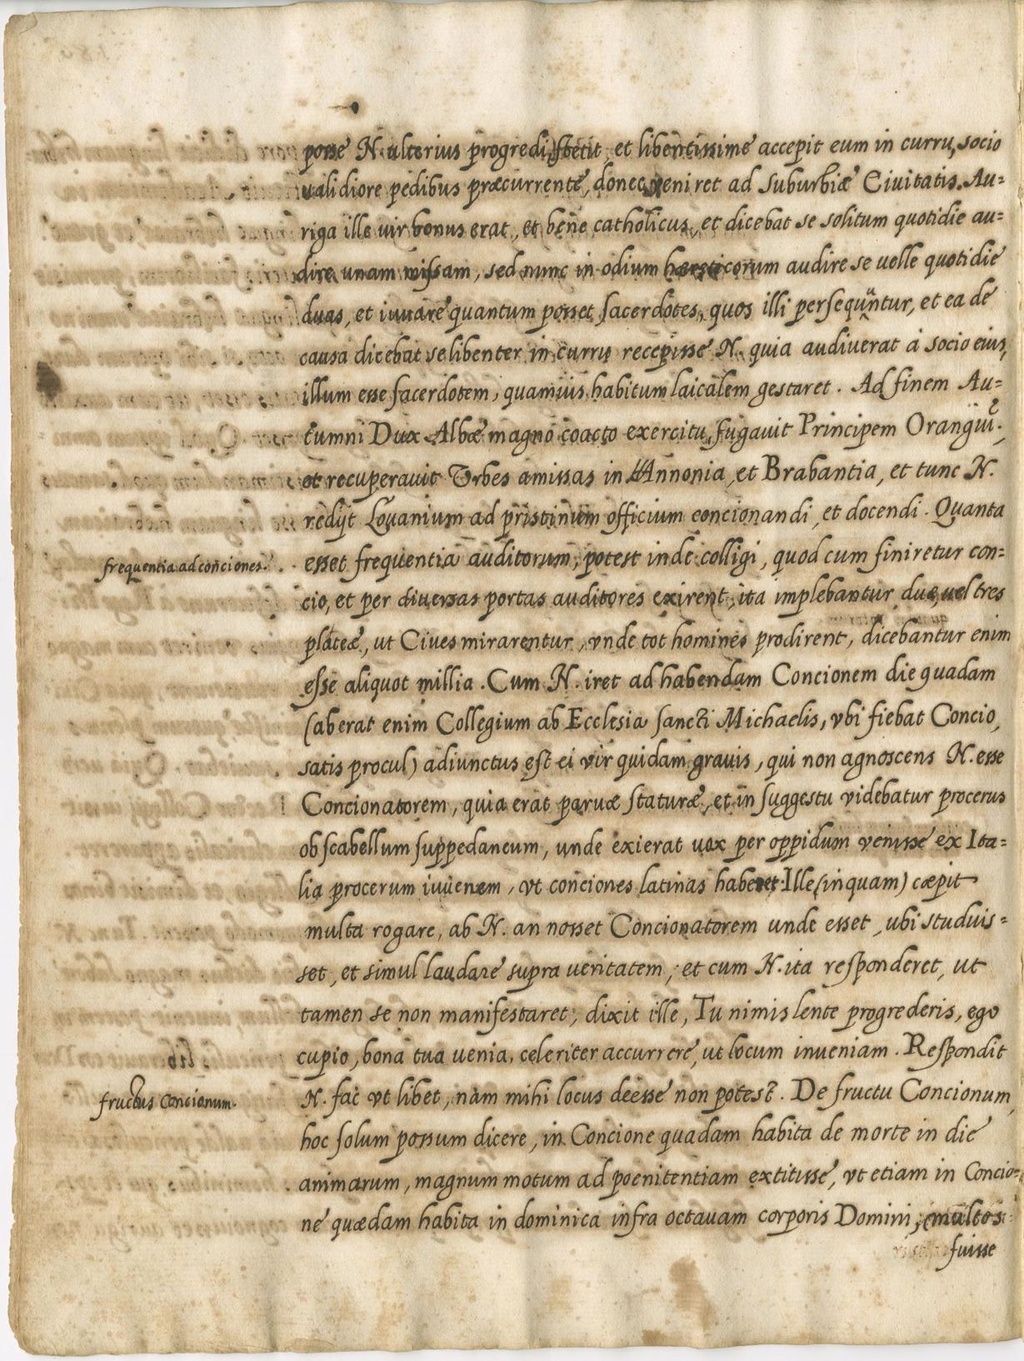 posse N. ulterius progredi, stetit, et libentissime accepit eum in curru, socio
validiore pedibus præcurrente, donec veniret ad suburbia Ciuitatis. Au=
riga ille vir bonus erat, et bene catholicus, et dicebat se solitum quotidie au=
dire unam missam, sed nunc in odium hæreticorum audire se uelle quotidie
duas, et iuuare quantum posset sacerdotes, quos illi persequuntur, et ea de
causa dicebat se libenter in curru recepisse N. quia audiuerat à socio eius,
illum esse sacerdotem, quamuis habitum laicalem gestaret. Ad finem Au=
tumni Dux Albæ magno coacto exercitu, fugauit Principem Orangiæ,
et recuperauit Vrbes amissas in Annonia, et Brabantia, et tunc N.
redijt Louanium ad pristinum officium concionandi, et docendi. Quanta
frequentia ad conciones. esset frequentia auditorum, potest inde colligi, quod cum finiretur con=
cio, et per diuersas portas auditores exirent, ita implebantur duæ, uel tres
plateæ, ut Ciues mirarentur, vnde tot homines prodirent, dicebantur enim
esse aliquot millia. Cum N. iret ad habendam Concionem die quadam
(aberat enim Collegium ab Ecclesia sancti Michaelis, vbi fiebat Concio,
satis procul) adiunctus est ei vir quidam grauis, qui non agnoscens N. esse
Concionatorem, quia erat paruæ staturæ, et in suggestu videbatur procerus
ob scabellum suppedaneum, unde exierat uox per oppidum venisse ex Ita=
lia procerum iuuenem, vt conciones latinas haberet. Ille (inquam) cæpit
multa rogare, ab N. an nosset Concionatorem unde esset, ubi studuis=
set, et simul laudare supra veritatem, et cum N. ita responderet, ut
tamen se non manifestaret, dixit ille, Tu nimis lente progrederis, ego
cupio, bona tua uenia, celeriter accurrere, ut locum inueniam. Respondit
fructus Concionum. N. fac vt libet, nam mihi locus deesse non potest. De fructu Concionum,
hoc solum possum dicere, in Concione quadam habita de morte in die
animarum, magnum motum ad poenitentiam extitisse, vt etiam in Concio=
ne quædam habita in dominica infra octauam corporis Domini, multos
fuisse